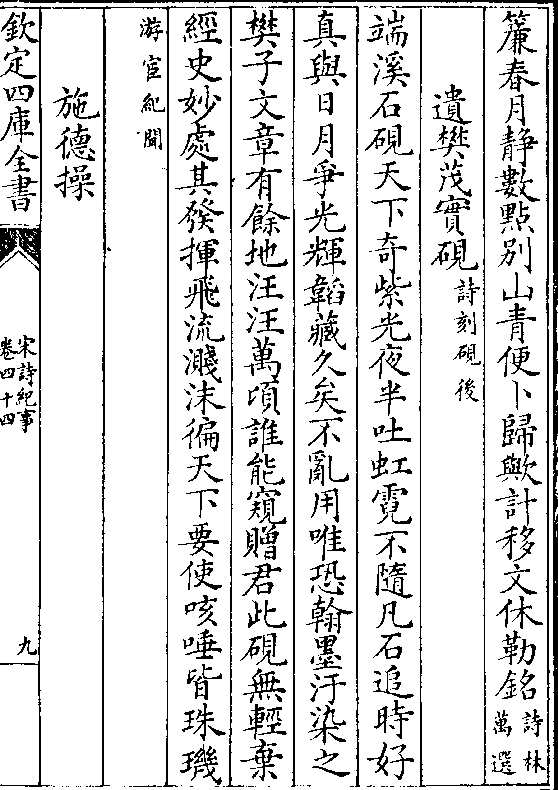 簾春月静數點别山青便卜歸歟計移文休勒銘詩林萬選
遺樊茂實硯詩刻硯後
端溪石硯天下奇紫光夜半吐虹霓不隨凡石追時好
真與日月爭光輝韜藏久矣不亂用唯恐翰墨汙染之
樊子文章有餘地汪汪萬頃誰能窺贈君此硯無輕棄
經史妙處其發揮飛流濺沫徧天下要使咳唾皆珠璣
游宦紀聞
施德操
欽定四庫全書
宋詩紀事
卷四十四
九